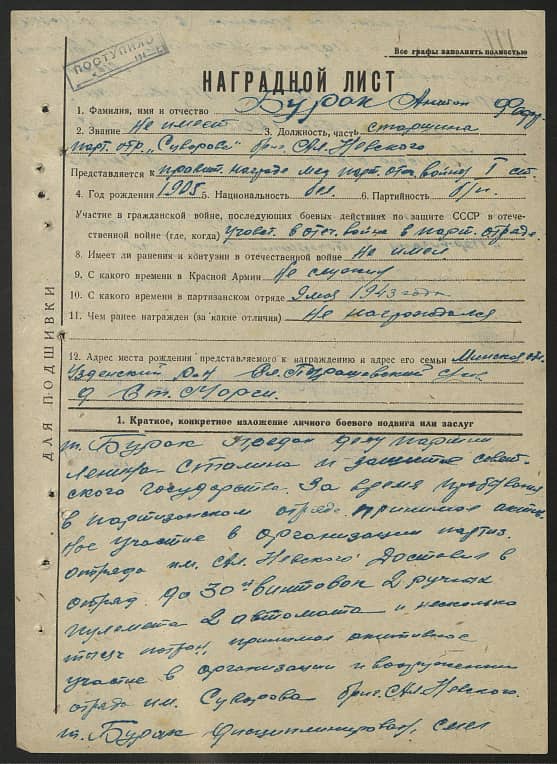 ПОСТУПИЛО
Все графы заполнять полностью
НАГРАДНОЙ ЛИСТ
1. Фамилия, имя и отчество Бурак Антон Фад
2. Звание Не имеет 3. Должность, часть старшина
парт. отр. „Суворова" бриг. Ал. Невского
Представляется к правит. награде мед парт. отеч. войны I ст.
4. Год рождения 1905 5. Национальность бел. 6. Партийность б/п.
Участие в гражданской войне, последующих боевых действиях по защите СССР в отече-
ственной войне (где, когда) Участ. в отеч. войне в парт. отряде.
8. Имеет ли ранения и контузии в отечественной войне Не имел
9. С какого времени в Красной Армии Не служил
10. С какого времени в партизанском отряде мая 1943 года
11. Чем ранее награжден (за какие отличия) Не награждался
12. Адрес места рождения представляемого к награждению и адрес его семьи Минская об.
Узденский р-н
д. Ст.
ДЛЯ ПОДШИВКИ
1. Краткое, конкретное изложение личного боевого подвига или заслуг
т. Бурак предан делу партии
Ленина-Сталина и защите совет-
ского государства. За время пребывания
в партизанском отряде принимал актив-
ное участие в организации партиз.
отряда им. Ал. Невского. Доставил в
отряд до 30 винтовок 2 ручных
пулемета 2 автомата и несколько
тысяч патрон, принимал активное
участие в организации и вооружении
отряда им. Суворова бриг. Ал. Невского.
т. Бурак дисциплинирован, смел